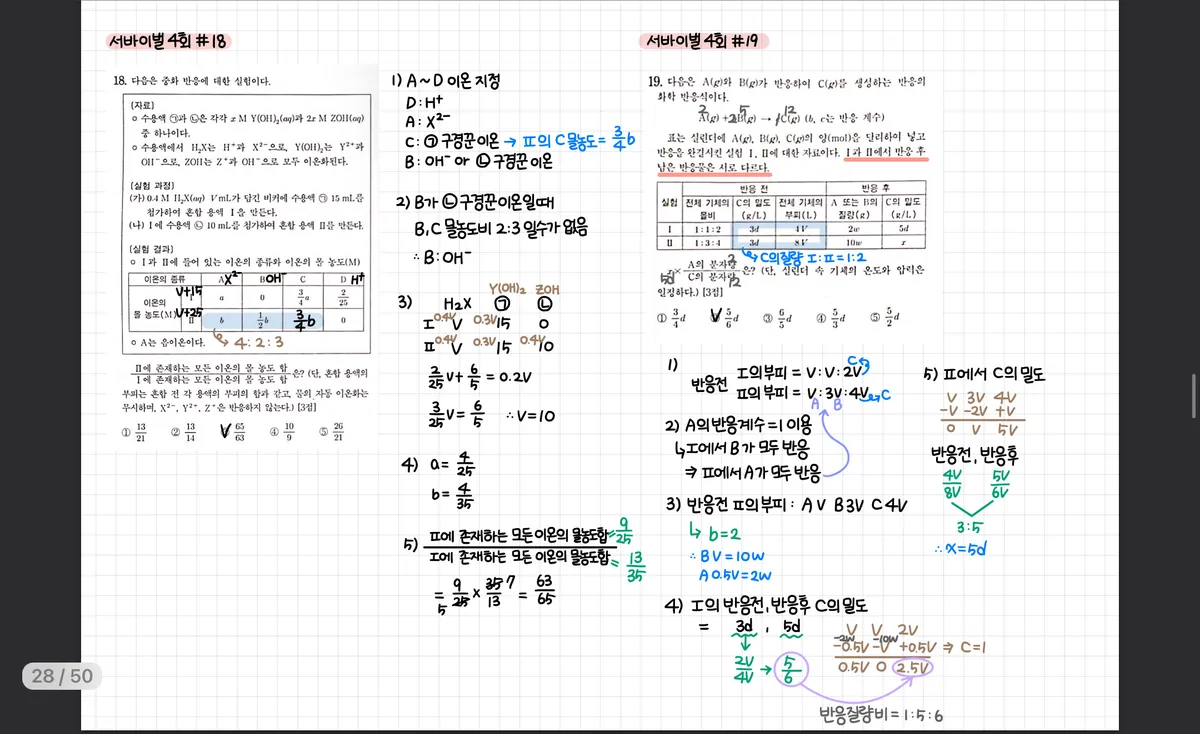 서바이벌 4회 #18
18. 다음은 중화 반응에 대한 실험이다.
[자료]
○ 수용액 ㉠과 ㉡은 각각 x M Y(OH)₂(aq)과 2x M ZOH(aq) 중 하나이다.
○ 수용액에서 H₂X는 H⁺과 X²⁻으로, Y(OH)₂는 Y²⁺과 OH⁻으로, ZOH는 Z⁺과 OH⁻으로 모두 이온화된다.
[실험 과정]
(가) 0.4 M H₂X(aq) V mL가 담긴 비커에 수용액 ㉠ 15 mL를
첨가하여 혼합 용액 Ⅰ을 만든다.
(나) Ⅰ에 수용액 ㉡ 10 mL를 첨가하여 혼합 용액 Ⅱ를 만든다.
[실험 결과]
○ Ⅰ과 Ⅱ에 들어 있는 이온의 종류와 이온의 몰 농도(M)
이온의 종류 A X²⁻ B OH⁻ C D H⁺
이온의 몰 농도(M)
V+15 Ⅰ a 0 3/4 a 2/25
V+25 Ⅱ b 1/2 b 3/4 b 0
○ A는 음이온이다. 4:2:3
Ⅱ에 존재하는 모든 이온의 몰 농도 합 / Ⅰ에 존재하는 모든 이온의 몰 농도 합 은? (단, 혼합 용액의
부피는 혼합 전 각 용액의 부피의 합과 같고, 물의 자동 이온화는
무시하며, X²⁻, Y²⁺, Z⁺은 반응하지 않는다.) [3점]
① 13/21 ② 13/14 ③ 65/63 ④ 10/9 ⑤ 26/21
1) A~D 이온 지정
D: H⁺
A: X²⁻
C: ㉠ 구경꾼 이온 → Ⅱ의 C 몰농도 = 3/4 b
B: OH⁻ or ㉡ 구경꾼 이온
2) B가 ㉡ 구경꾼이온일때
B, C 몰농도비 2:3 일수가 없음
∴ B: OH⁻
3) H₂X Y(OH)₂ ㉠ ZOH ㉡
Ⅰ 0.4V V 0.3V 15 0
Ⅱ 0.4V V 0.3V 15 0.4V 10
2/25 V + 6/5 = 0.2V
3/25 V = 6/5 ∴ V=10
4) a = 4/25
b = 4/35
5) Ⅱ에 존재하는 모든 이온의 몰농도합 = 9/25
Ⅰ에 존재하는 모든 이온의 몰농도합 = 13/35
= 9/25 5 × 35 7/13 = 63/65
서바이벌 4회 #19
19. 다음은 A(g)와 B(g)가 반응하여 C(g)를 생성하는 반응의
화학 반응식이다.
2 5 12
A(g) + 2B(g) → 1C(g) (b, c는 반응 계수)
표는 실린더에 A(g), B(g), C(g)의 양(mol)을 달리하여 넣고
반응을 완결시킨 실험 Ⅰ, Ⅱ에 대한 자료이다. Ⅰ과 Ⅱ에서 반응 후
남은 반응물은 서로 다르다.
반응 전 반응 후
실험 전체 기체의 몰비 C의 밀도 (g/L) 전체 기체의 부피(L) A 또는 B의 질량(g) C의 밀도 (g/L)
Ⅰ 1:1:2 3d 4V 2w 5d
Ⅱ 1:3:4 3d 8V 10w x
C의질량 Ⅰ:Ⅱ=1:2
x 5d × A의 분자량 2 / C의 분자량 12 은? (단, 실린더 속 기체의 온도와 압력은
일정하다.) [3점]
① 3/4 d ② 5/6 d ③ 6/5 d ④ 5/3 d ⑤ 5/2 d
1) 반응전 Ⅰ의부피 = V:V:2V C
Ⅱ의부피 = V:3V:4V C
A B
2) A의 반응계수=1 이용
↳ Ⅰ에서 B가 모두 반응
⇒ Ⅱ에서 A가 모두 반응
3) 반응전 Ⅱ의부피: A V B 3V C 4V
↳ b=2
∴ B V = 10w
A 0.5V = 2w
4) Ⅰ의 반응전, 반응후 C의밀도
= 3d, 5d
2V/4V → 5/6
V V 2V
-2w -10w
-0.5V -V +0.5V ⇒ C=1
0.5V 0 2.5V
반응질량비 = 1:5:6
5) Ⅱ에서 C의밀도
V 3V 4V
-V -2V +V
0 V 5V
반응전, 반응후
4V/8V 5V/6V
3:5
∴ x=5d
28 / 50